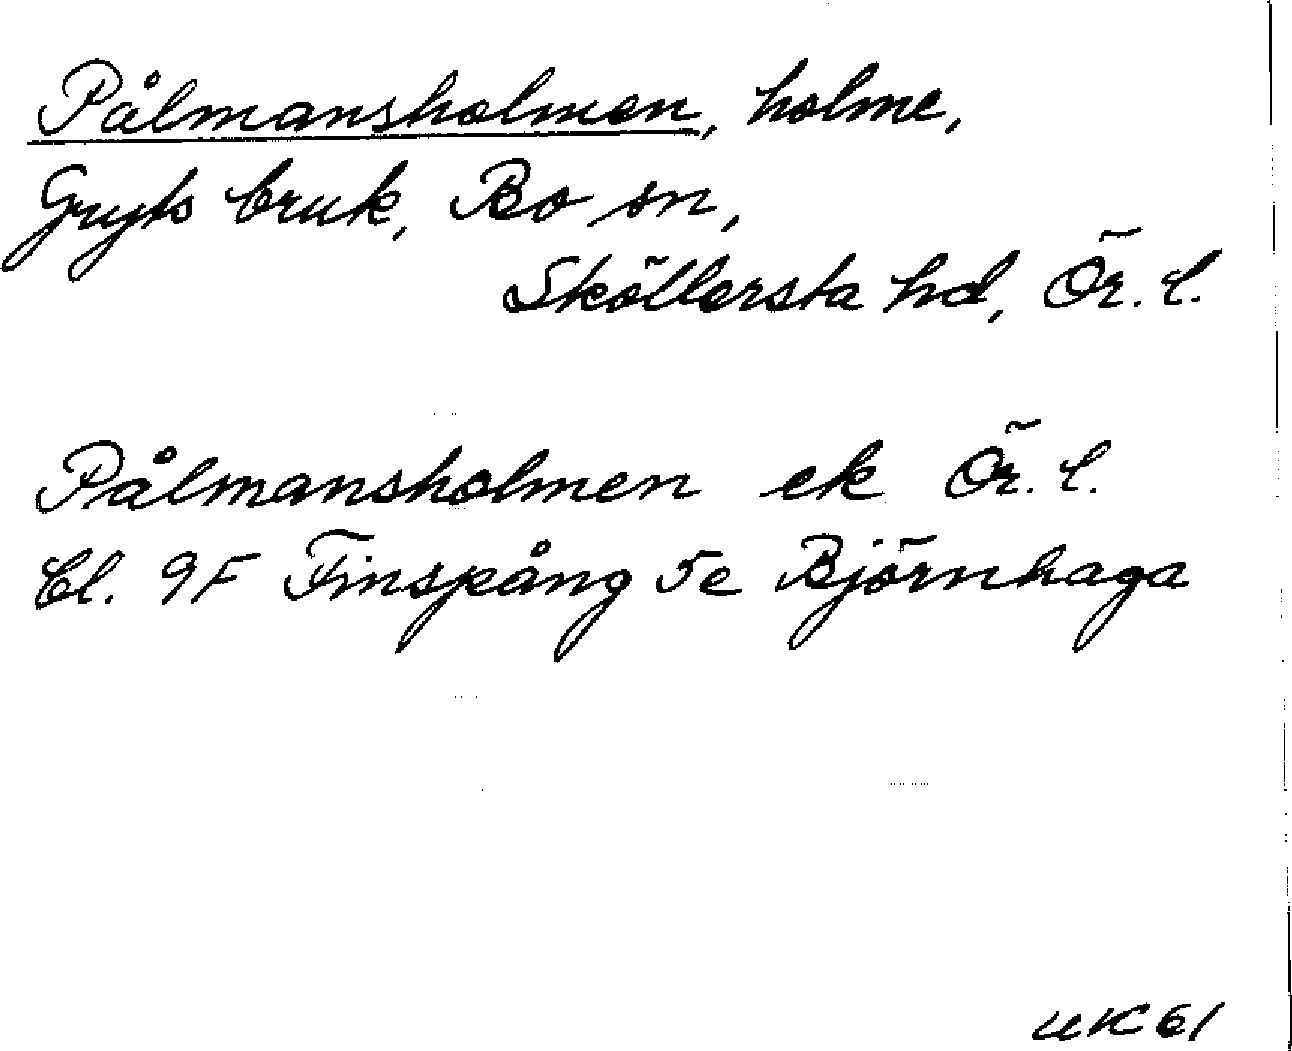 Pålmansholmen, holme,
Gryts bruk, Bo sn,
Sköllersta hd, Ör. l.
Pålmansholmen ek Ör. l.
Bl. 9F Finspång 5e Björnhaga
UK 61